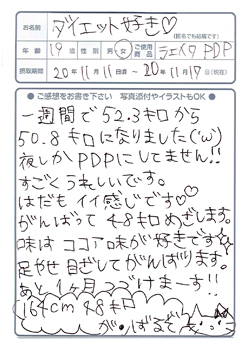 お名前 ダイエット好き♡
(匿名でも結構です)
年齢 19才 性別 男・女 ご使用商品 ラエスリ PDP
摂取期間 20年11月11日~20年11月17日(現在)
●ご感想をお書き下さい 写真添付やイラストもOK●
一週間で52.3キロから
50.8キロになりました('ω')
夜しかPDPにしてません!!
すごくうれしいです。
はだもイイ感じです♡
がんばって48キロめざします。
味はココア味が好きです☆
足やせ目ざしてがんばります。
あと1ヶ月つづけまーす!!
164cm 48キロ
がんばるぞ